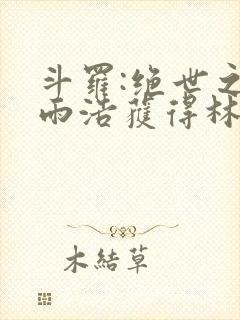 斗羅:绝世之
雨浩獲得林
木結草